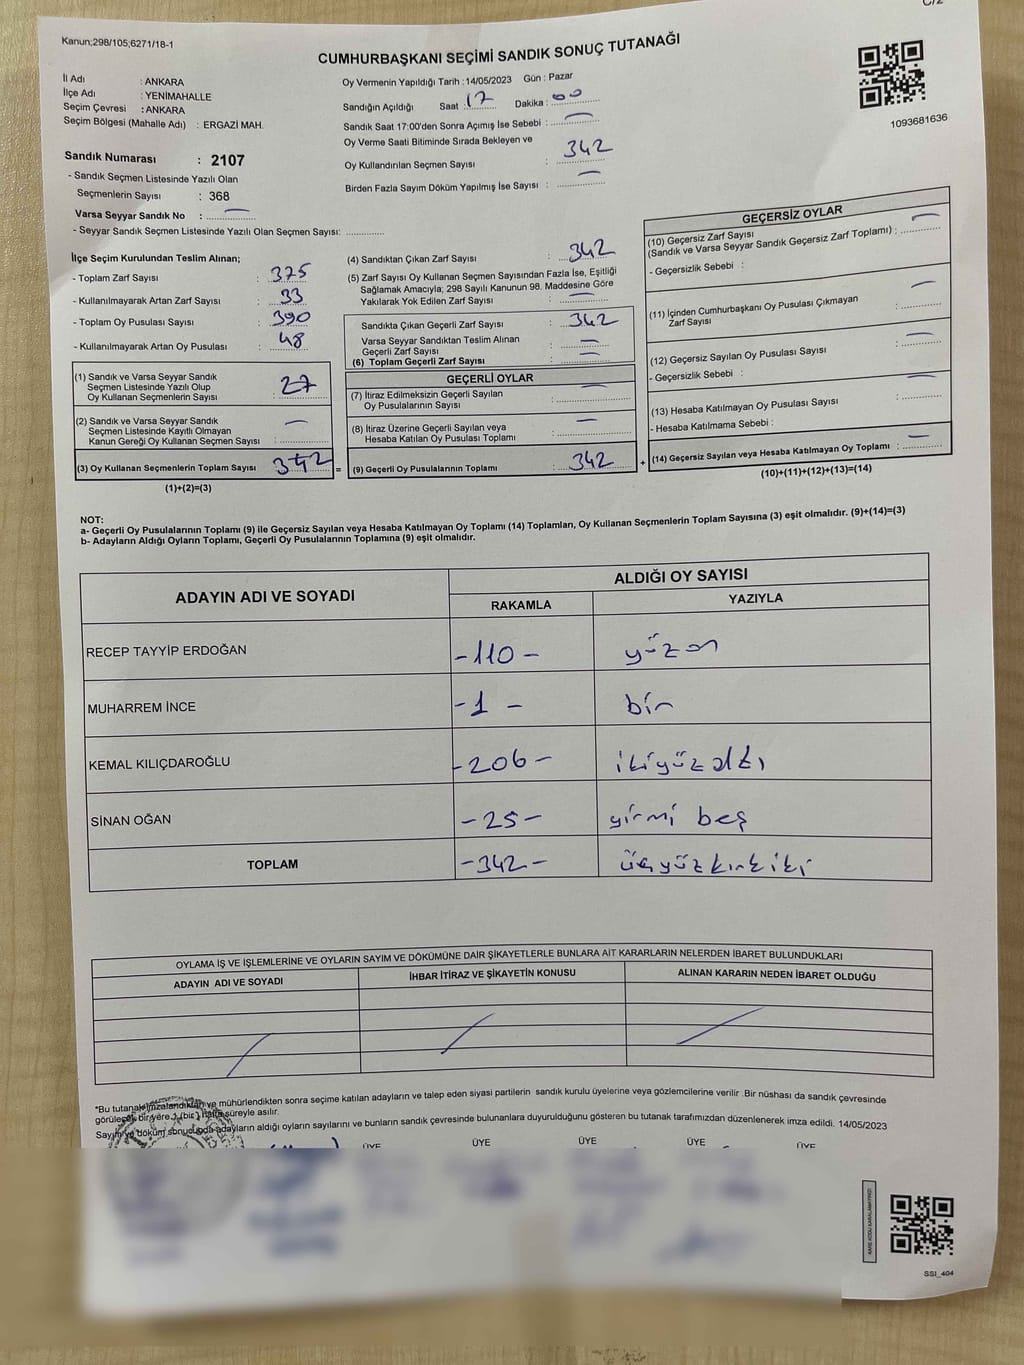 C/2
Kanun;298/105;6271/18-1
CUMHURBAŞKANI SEÇİMİ SANDIK SONUÇ TUTANAĞI
İl Adı : ANKARA
İlçe Adı : YENİMAHALLE
Seçim Çevresi : ANKARA
Seçim Bölgesi (Mahalle Adı) : ERGAZİ MAH.
Oy Vermenin Yapıldığı Tarih : 14/05/2023 Gün : Pazar
Sandığın Açıldığı Saat 17 Dakika : 00
Sandık Saat 17:00'den Sonra Açımış İse Sebebi : —
Oy Verme Saati Bitiminde Sırada Bekleyen ve
Oy Kullandırılan Seçmen Sayısı : 342
Birden Fazla Sayım Döküm Yapılmış İse Sayısı : —
1093681636
Sandık Numarası : 2107
- Sandık Seçmen Listesinde Yazılı Olan
Seçmenlerin Sayısı : 368
Varsa Seyyar Sandık No : —
- Seyyar Sandık Seçmen Listesinde Yazılı Olan Seçmen Sayısı: ............
İlçe Seçim Kurulundan Teslim Alınan;
- Toplam Zarf Sayısı : 375
- Kullanılmayarak Artan Zarf Sayısı : 33
- Toplam Oy Pusulası Sayısı : 390
- Kullanılmayarak Artan Oy Pusulası : 48
(1) Sandık ve Varsa Seyyar Sandık
Seçmen Listesinde Yazılı Olup
Oy Kullanan Seçmenlerin Sayısı : 27
(2) Sandık ve Varsa Seyyar Sandık
Seçmen Listesinde Kayıtlı Olmayan
Kanun Gereği Oy Kullanan Seçmen Sayısı : —
(3) Oy Kullanan Seçmenlerin Toplam Sayısı 342 =
(1)+(2)=(3)
(4) Sandıktan Çıkan Zarf Sayısı : 342
(5) Zarf Sayısı Oy Kullanan Seçmen Sayısından Fazla İse, Eşitliği
Sağlamak Amacıyla; 298 Sayılı Kanunun 98. Maddesine Göre
Yakılarak Yok Edilen Zarf Sayısı : —
Sandıkta Çıkan Geçerli Zarf Sayısı : 342
Varsa Seyyar Sandıktan Teslim Alınan
Geçerli Zarf Sayısı : —
(6) Toplam Geçerli Zarf Sayısı : —
GEÇERLİ OYLAR
(7) İtiraz Edilmeksizin Geçerli Sayılan
Oy Pusulalarının Sayısı : —
(8) İtiraz Üzerine Geçerli Sayılan veya
Hesaba Katılan Oy Pusulası Toplamı : —
(9) Geçerli Oy Pusulalarının Toplamı : 342 +
GEÇERSİZ OYLAR
(10) Geçersiz Zarf Sayısı
(Sandık ve Varsa Seyyar Sandık Geçersiz Zarf Toplamı) : —
- Geçersizlik Sebebi :
(11) İçinden Cumhurbaşkanı Oy Pusulası Çıkmayan
Zarf Sayısı : —
(12) Geçersiz Sayılan Oy Pusulası Sayısı : —
- Geçersizlik Sebebi : —
(13) Hesaba Katılmayan Oy Pusulası Sayısı :
- Hesaba Katılmama Sebebi :
(14) Geçersiz Sayılan veya Hesaba Katılmayan Oy Toplamı : —
(10)+(11)+(12)+(13)=(14)
NOT:
a- Geçerli Oy Pusulalarının Toplamı (9) ile Geçersiz Sayılan veya Hesaba Katılmayan Oy Toplamı (14) Toplamları, Oy Kullanan Seçmenlerin Toplam Sayısına (3) eşit olmalıdır. (9)+(14)=(3)
b- Adayların Aldığı Oyların Toplamı, Geçerli Oy Pusulalarının Toplamına (9) eşit olmalıdır.
ADAYIN ADI VE SOYADI ALDIĞI OY SAYISI
RAKAMLA YAZIYLA
RECEP TAYYİP ERDOĞAN -110- yüzon
MUHARREM İNCE -1- bir
KEMAL KILIÇDAROĞLU -206- ikiyüzaltı
SİNAN OĞAN -25- yirmi beş
TOPLAM -342- üçyüzkırkiki
OYLAMA İŞ VE İŞLEMLERİNE VE OYLARIN SAYIM VE DÖKÜMÜNE DAİR ŞİKAYETLERLE BUNLARA AİT KARARLARIN NELERDEN İBARET BULUNDUKLARI
ADAYIN ADI VE SOYADI İHBAR İTİRAZ VE ŞİKAYETİN KONUSU ALINAN KARARIN NEDEN İBARET OLDUĞU
*Bu tutanak imzalandıktan ve mühürlendikten sonra seçime katılan adayların ve talep eden siyasi partilerin sandık kurulu üyelerine veya gözlemcilerine verilir .Bir nüshası da sandık çevresinde
görülecek bir yere 1 (bir) hafta süreyle asılır.
Sayım ve döküm sonucunda adayların aldığı oyların sayılarını ve bunların sandık çevresinde bulunanlara duyurulduğunu gösteren bu tutanak tarafımızdan düzenlenerek imza edildi. 14/05/2023
ÜYE ÜYE ÜYE ÜYE ÜYE
KARE KODU KARALAMAYINIZ!
SSI_404